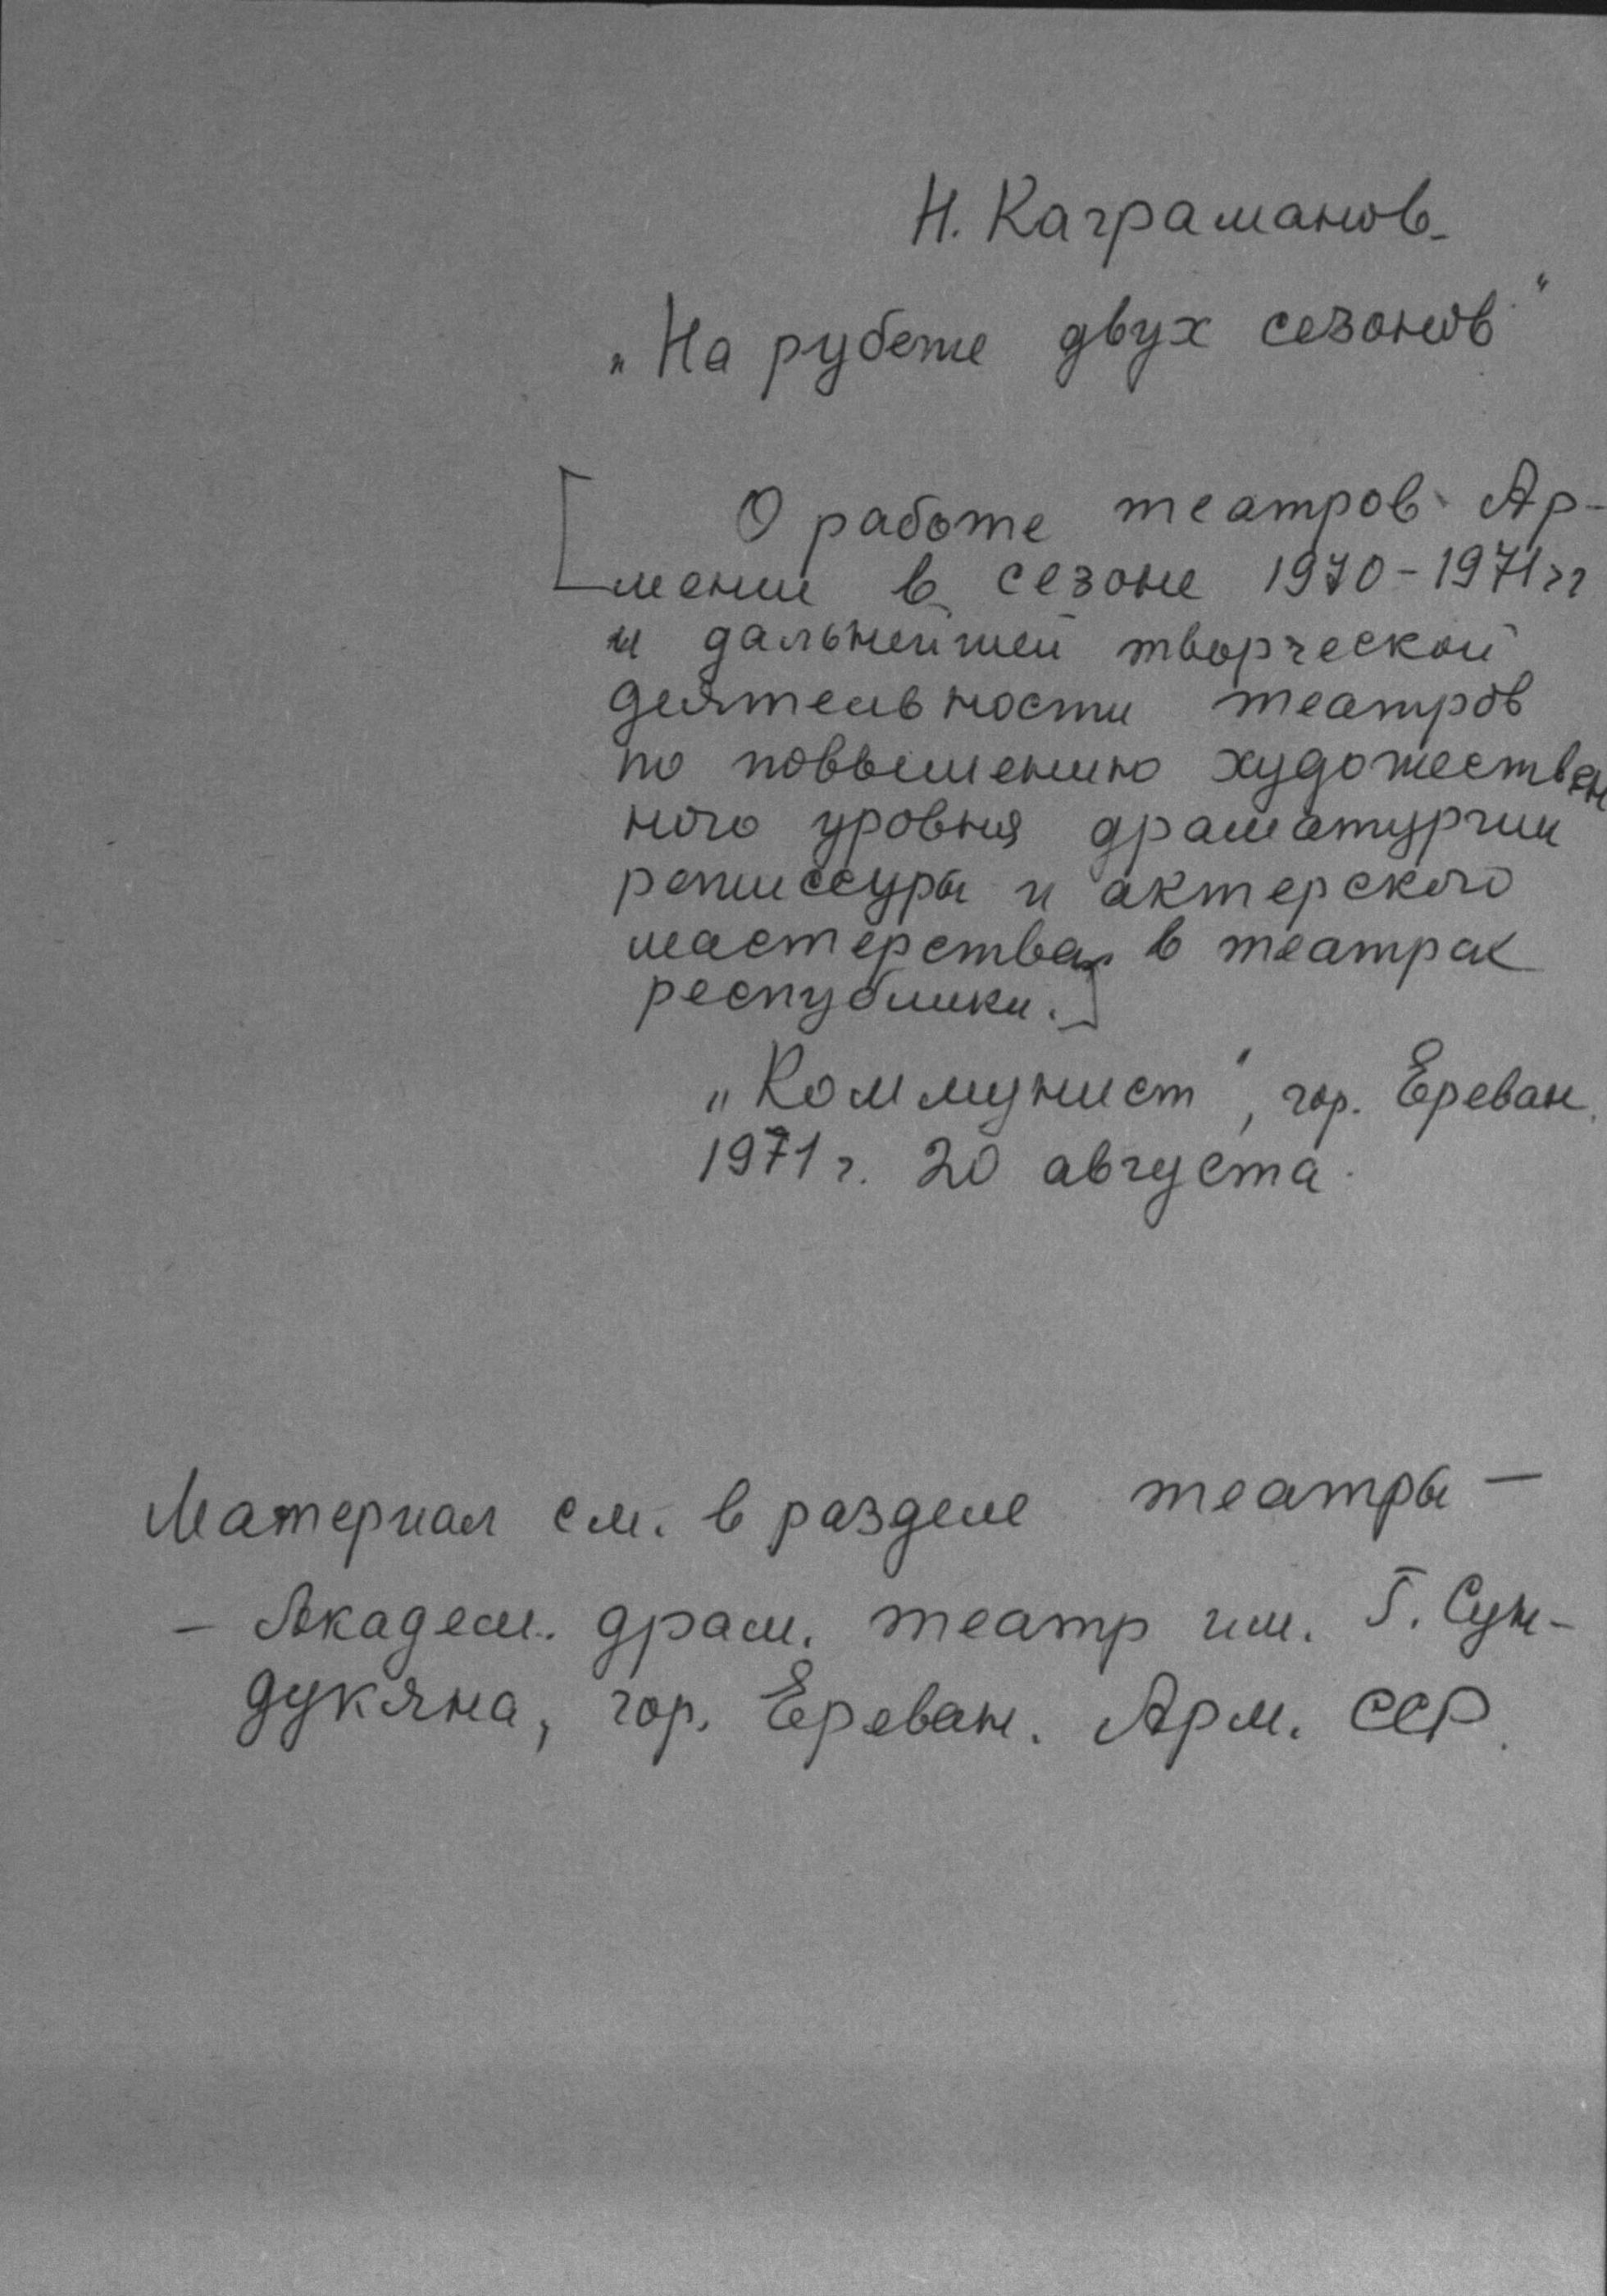 Н. Каграманов.
„На рубеже двух сезонов"
[О работе театров Ар-
мении в сезоне 1970-1971гг
и дальнейшей творческой
деятельности театров
по поввышению художествен
ного уровня драматургии
режиссуры и актерского
мастерства в театрах
республики.]
„Коммунист", гор. Ереван.
1971 г. 20 августа.
Материал см. в разделе театры —
— Академ. драм. театр им. Г. Сун-
дукяна, гор. Ереван. Арм. ССР.